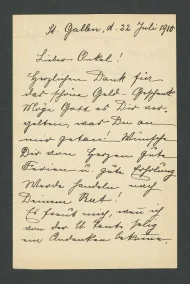 St. Gallen, d. 22 Juli 1910
Lieber Onkel!
Herzlichen Dank für
das schöne Geld-Geschenk
Möge Gott es Dir ver-
gelten, was Du an
mir getan! Wünsche
Dir von Herzen gute
Ferien u. gute Erholung
Werde handeln nach
Deinem Rat!
Es freut mich, weil ich
von der l. Tante selig
ein Andenken bekome